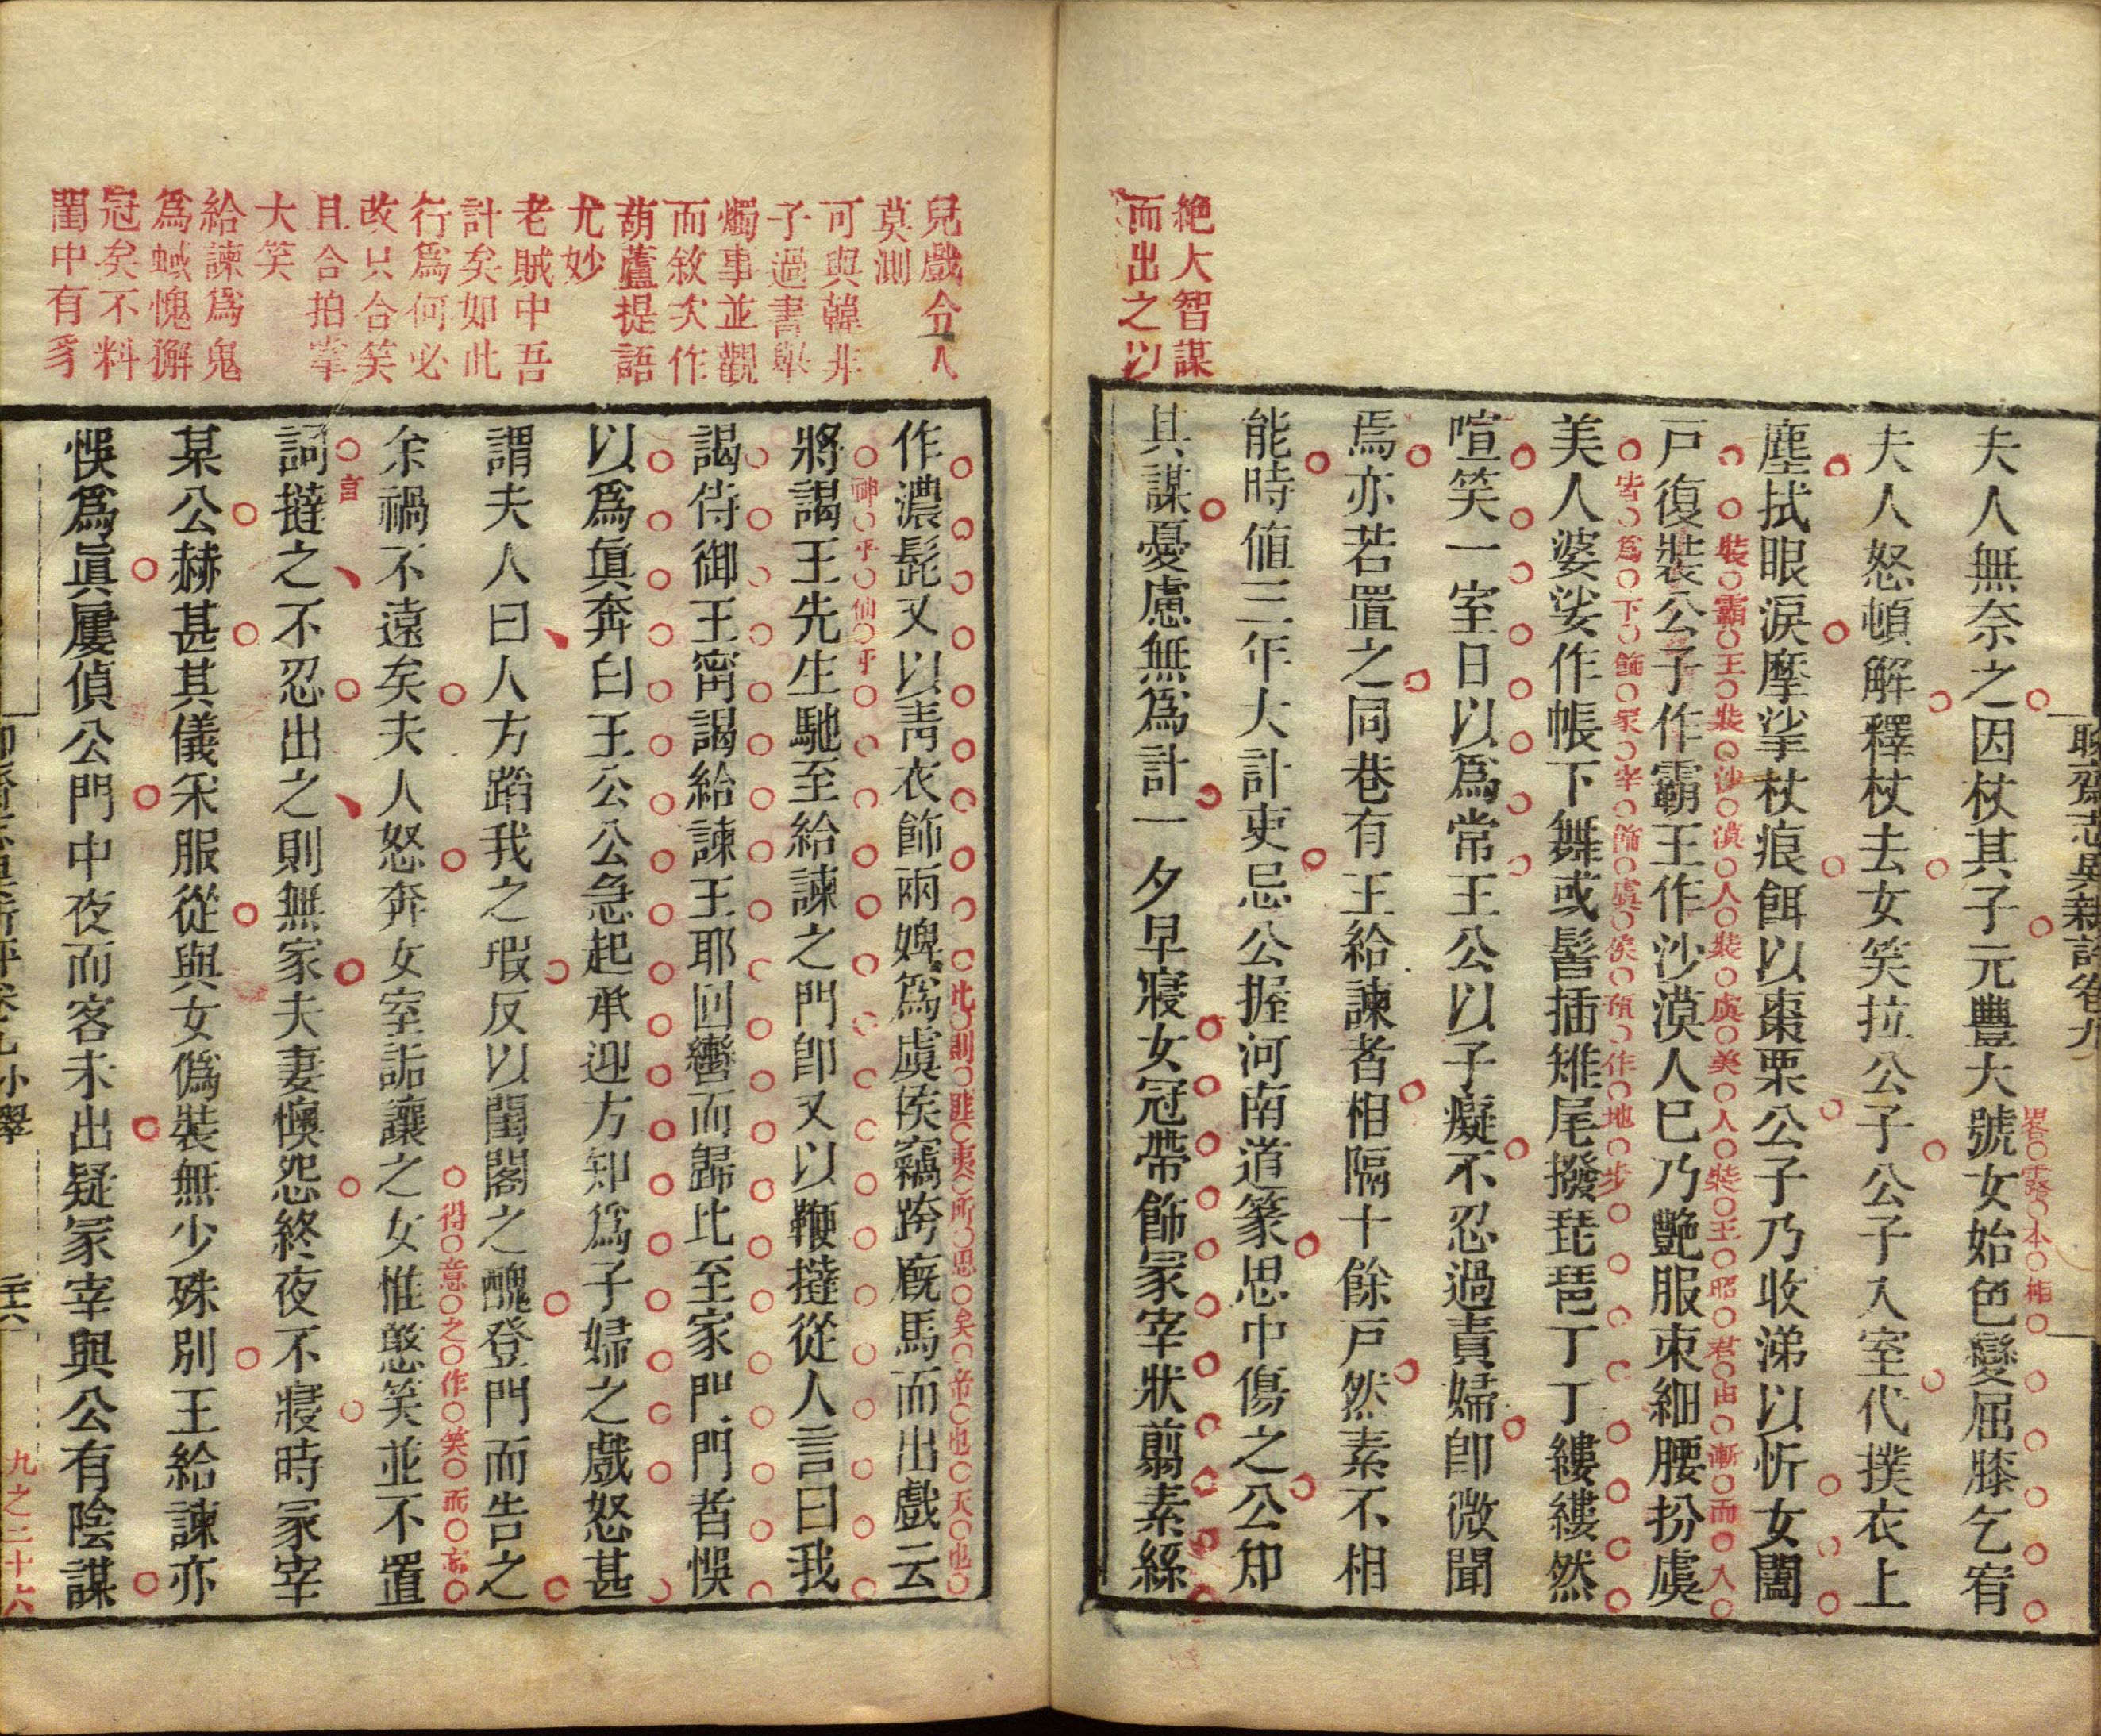 聊齋志異新評卷九
夫人無奈之因杖其子元豐大號女始色變屈膝乞宥
畧露本相
夫人怒頓解釋杖去女笑拉公子公子入室代撲衣上
塵拭眼淚摩挲杖痕餌以棗栗公子乃收涕以忻女闔
戶復裝公子作霸王作沙漠人已乃艷服束細腰扮虞
裝霸王裝沙漠人裝虞美人裝王昭君由漸而入
美人婆娑作帳下舞或髻插雉尾撥琵琶丁丁縷縷然
皆為下飾冢宰飾虞侯預作地步
喧笑一室日以爲常王公以子癡不忍過責婦卽微聞
焉亦若置之同巷有王給諫者相隔十餘戶然素不相
能時値三年大計吏忌公握河南道篆思中傷之公知
其謀憂慮無爲計一夕早寢女冠帶飾冢宰狀翦素絲
絶大智謀
而出之以
兒戲令人
莫測
可與韓非
子過書舉
燭事並觀
而敘次作
葫蘆提語
尤妙
老賊中吾
計矣如此
行爲何必
改只合笑
且合拍掌
大笑
給諫爲鬼
爲蜮愧獬
冠矣不料
閨中有豸
作濃髭又以靑衣飾兩婢爲虞侯竊跨廐馬而出戲云
此則匪夷所思矣帝也天也
將謁王先生馳至給諫之門卽又以鞭撻從人言曰我
神乎仙乎
謁侍御王寗謁給諫王耶回轡而歸比至家門門者悞
以爲眞奔白王公公急起承迎方知爲子婦之戲怒甚
謂夫人曰人方蹈我之瑕反以閨閣之醜登門而告之
余禍不遠矣夫人怒奔女室詬讓之女惟憨笑並不置
得意之作笑而忘
言
訶撻之不忍出之則無家夫妻懊怨終夜不寢時冢宰
某公赫甚其儀采服從與女僞裝無少殊別王給諫亦
悞爲眞屢偵公門中夜而客未出疑冢宰與公有陰謀
聊齋志異新評卷九小翠
九之二十六